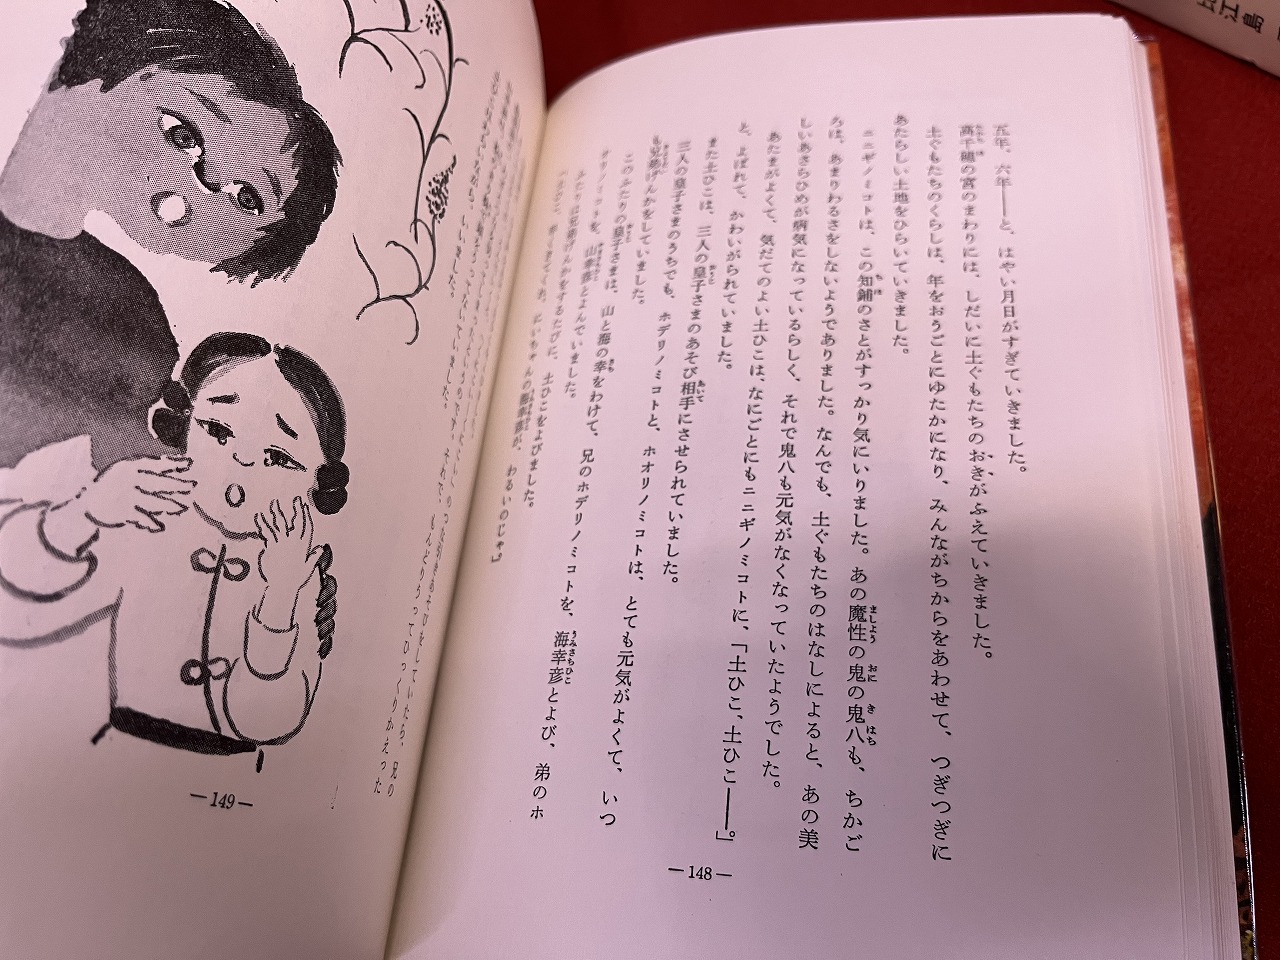 五年、六年――と、はやい月日がすぎていきました。
高千穂の宮のまわりには、しだいに土ぐもたちのおきがふえていきました。
土ぐもたちのくらしは、年をおうごとにゆたかになり、みんながちからをあわせて、つぎつぎに
あたらしい土地をひらいていきました。
ニニギノミコトは、この知鋪のさとがすっかり気にいりました。あの魔性の鬼の鬼八も、ちかご
ろは、あまりわるさをしないようでありました。なんでも、土ぐもたちのはなしによると、あの美
しいあさらひめが病気になっているらしく、それで鬼八も元気がなくなっていたようでした。
あたまがよくて、気だてのよい土ひこは、なにごとにもニニギノミコトに、「土ひこ、土ひこ――。」
と、よばれて、かわいがられていました。
また土ひこは、三人の皇子さまのあそび相手にさせられていました。
三人の皇子さまのうちでも、ホデリノミコトと、ホオリノミコトは、とても元気がよくて、いつ
も兄弟げんかをしていました。
このふたりの皇子さまは、山と海の幸をわけて、兄のホデリノミコトを、海幸彦とよび、弟のホ
オリノミコトを、山幸彦とよんでいました。
ふたりは兄弟げんかをするたびに、土ひこをよびました。
にいちゃんの海幸彦が、わるいのじゃ。」
―148―
をしていたら、兄の
ってひっくりかえった
いいました。
―149―
江島